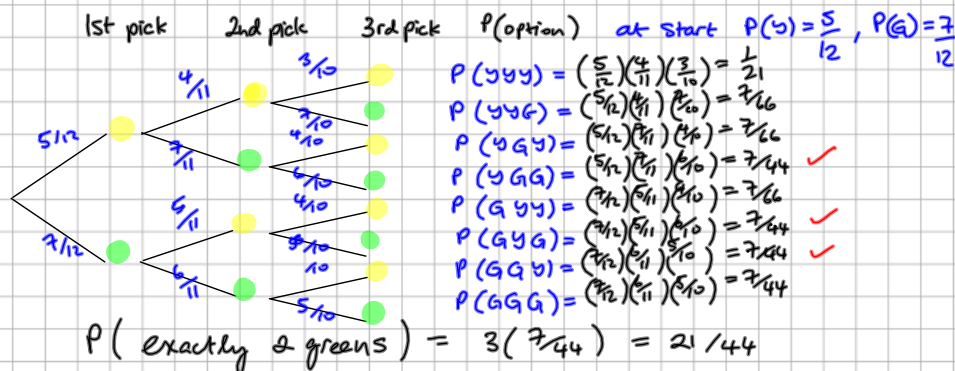 1st pick 2nd pick 3rd pick P(option) at start P(Y) = 5/12 , P(G) = 7/12
5/12
7/12
4/11
7/11
6/11
3/10
7/10
4/10
6/10
4/10
10
5/10
P(YYY) = (5/12)(4/11)(3/10) = 1/21
P(YYG) = (5/12)(4/11) = 7/66
P(YGY) = (5/12)(7/11)(4/10) = 7/66
P(YGG) = (5/12)(7/11)(6/10) = 7/44 ✓
P(GYY) = (7/12)(5/11)(4/10) = 7/66
P(GYG) = (7/12)(5/11)(6/10) = 7/44 ✓
P(GGY) = (7/12)(6/11)(5/10) = 7/44 ✓
P(GGG) = (7/12)(6/11)(5/10) = 7/44
P( exactly 2 greens ) = 3(7/44) = 21/44